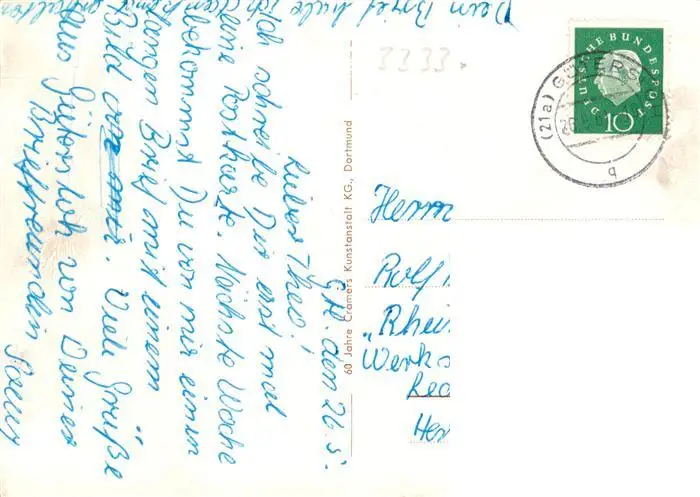 Dein Brief habe ich dankend erhalten
Gü. den 26.5.
Lieber Theo!
Ich schreibe Dir erst mal
eine Postkarte. Nächste Woche
bekommst Du von mir einen
langen Brief mit einem
Bild von mir. Viele Grüße
aus Gütersloh von Deiner
Brieffreundin
60 Jahre Cramers Kunstanstalt KG., Dortmund
3333.
DEUTSCHE BUNDESPOST
10
(21a) GÜTERSL
q
Herrn
Rolf
„Rhei
Werks
Red
Her